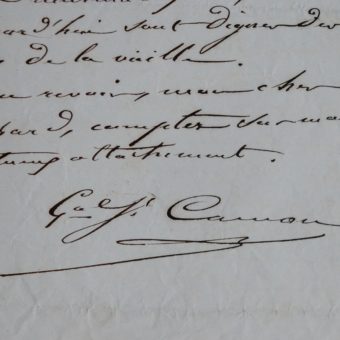 ard'hui sont dignes des
de la vieille.
revoir, mon cher
ard, comptez sur mon
attachement.
Gal Jh Camou